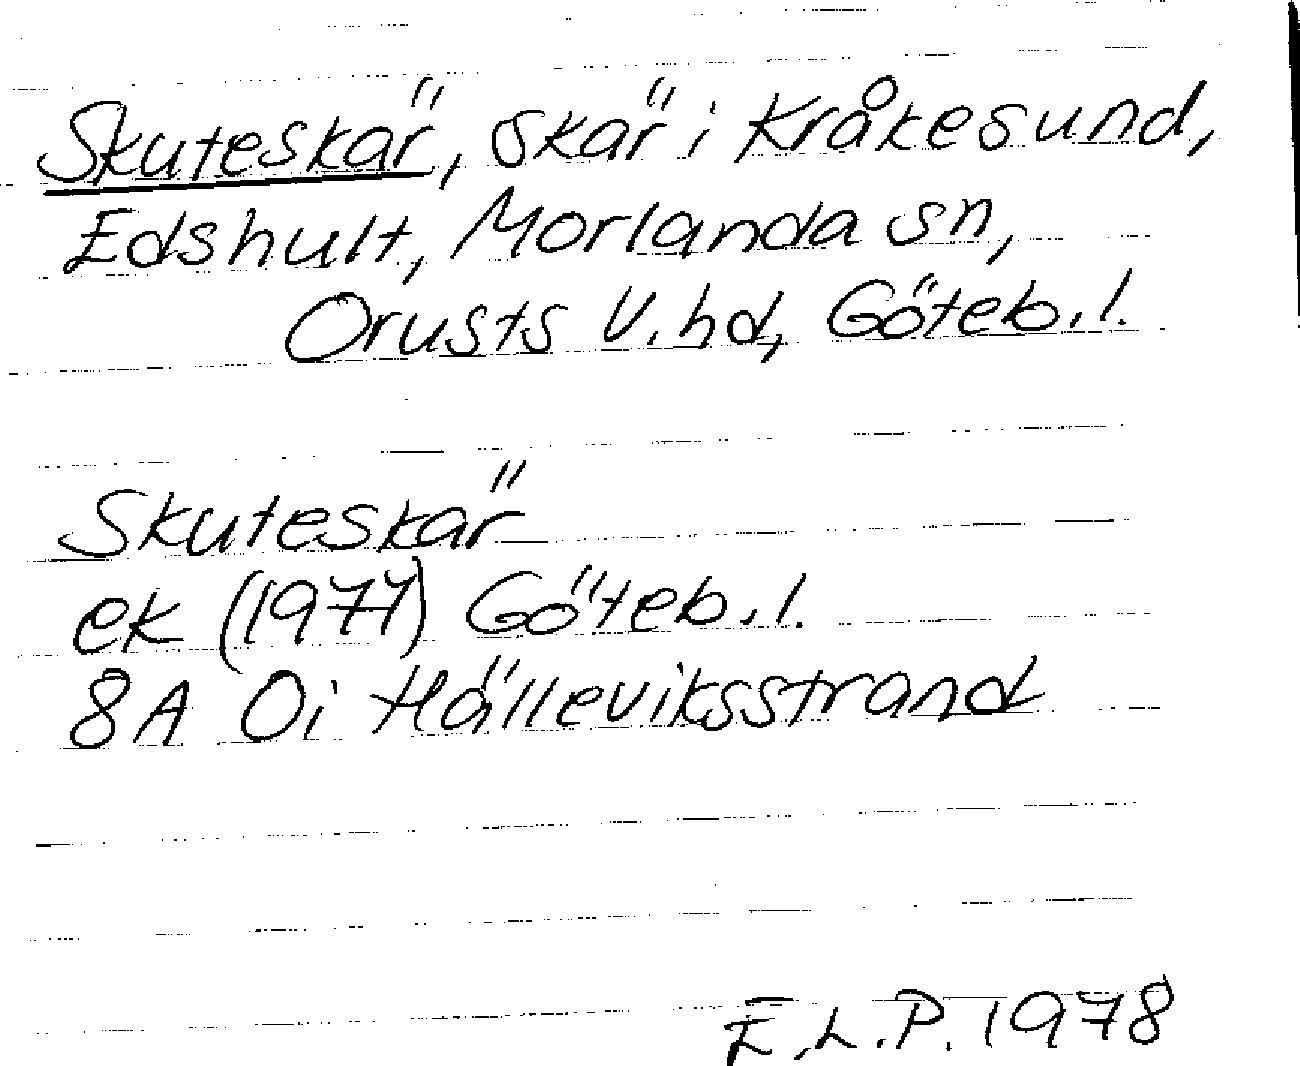 Skuteskär, skär i Kråkesund,
Edshult, Morlanda sn,
Orusts V. hd, Göteb. l.
Skuteskär
ek (1977) Göteb. l.
8A 0i Hälleviksstrand
E.L.P. 1978